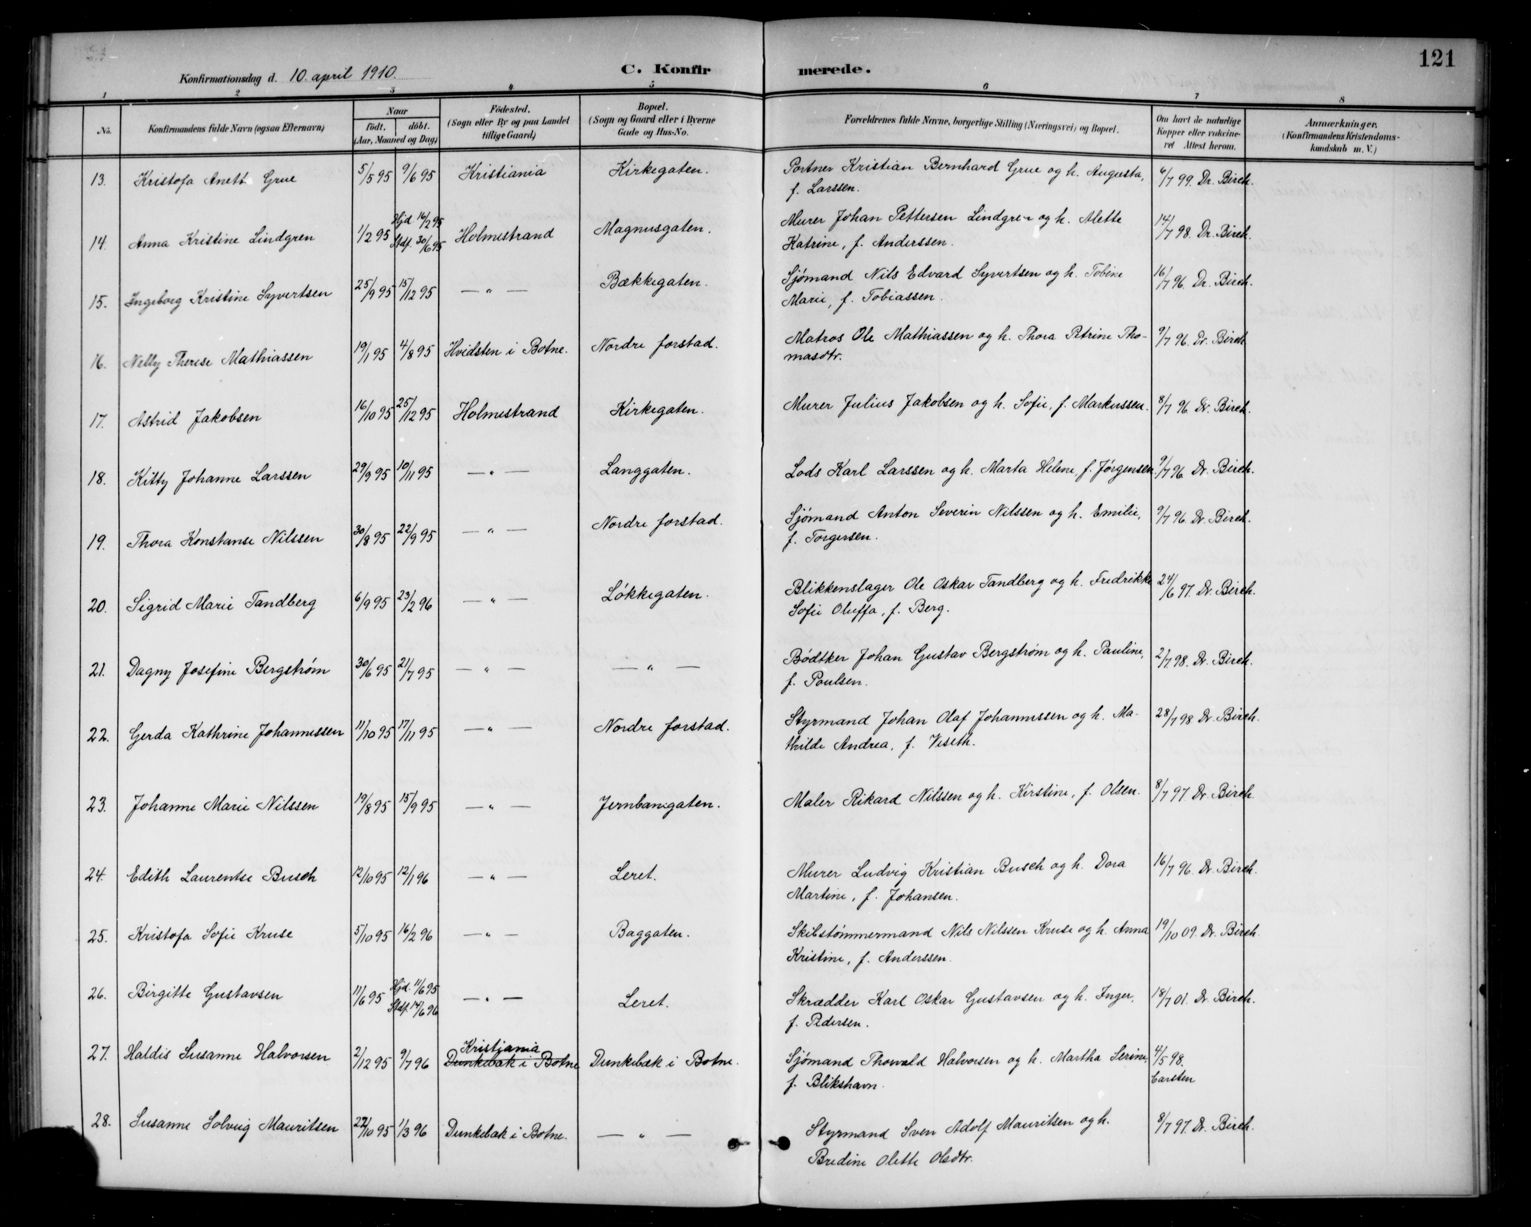 121
Konfirmationsdag d. 10 april 1910.
C. Konfirmerede.
1 2 3 4 5 6 7 8
No. Konfirmandens fulde Navn (ogsaa Efternavn) Naar født. døbt. (Aar, Maaned og Dag) Fødested. (Sogn eller By og paa Landet tillige Gaard) Bopæl. (Sogn og Gaard eller i Byerne Gade og Hus-No. Forældrenes fulde Navne, borgerlige Stilling (Næringsvei) og Bopæl. Om havt de naturlige Kopper eller vaccineret Attest herom. Anmærkninger. (Konfirmandens Kristendomskundskab m. V.)
13. Kristofa Anette Grue 5/5 95 9/6 95 Kristiania Kirkegaten. Portner Kristian Bernhard Grue og h. Augusta, 6/7 99. Dr. Birch.
f. Larssen.
14. Anna Kristine Lindgren 1/2 95 Hjd. 16/2 95 Stdf. 30/6 95 Holmestrand Magnusgaten. Murer Johan Pettersen Lindgren og h. Alette 14/7 98. Dr. Birch.
Katrine, f. Anderssen.
15. Ingeborg Kristine Syvertsen 25/9 95 15/12 95 — " — Bækkegaten. Sjømand Nils Edvard Syvertsen og h. Tobine 16/7 96. Dr. Birch.
Marie, f. Tobiassen.
16. Nelly Therese Mathiassen 19/1 95 4/8 95 Hvidsten i Botne. Nordre forstad. Matros Ole Mathiassen og h. Thora Petrine Tho- 9/7 96. Dr. Birch.
masdtr.
17. Astrid Jakobsen 16/10 95 25/12 95 Holmestrand Kirkegaten. Murer Julius Jakobsen og h. Sofie, f. Markussen. 8/7 96 Dr. Birch.
18. Kitty Johanne Larssen 29/9 95 10/11 95 — " — Langgaten. Lods Karl Larssen og h. Marta Helene f. Jørgensen 9/7 96. Dr. Birch.
19. Thora Konstanse Nilssen 30/8 95 22/9 95 — " — Nordre forstad. Sjømand Anton Severin Nilssen og h. Emilie, 9/7 96. Dr. Birch.
f. Torgersen.
20. Sigrid Marie Tandberg 6/9 95 23/2 96 — " — Løkkegaten. Blikkenslager Ole Oskar Tandberg og h. Fredrikke 24/6 97. Dr. Birch.
Sofie Oluffa, f. Berg.
21. Dagny Josefine Bergstrøm 30/6 95 21/7 95 — " — — " — Bødtker Johan Gustav Bergstrøm og h. Pauline, 2/7 98. Dr. Birch.
f. Poulsen.
22. Gerda Kathrine Johannessen 11/10 95 17/11 95 — " — Nordre forstad. Styrmand Johan Olaf Johannessen og h. Ma- 28/7 98 Dr. Birch.
thilde Andrea, f. Viseth.
23. Johanne Marie Nilssen 19/8 95 15/9 95 — " — Jernbanegaten. Maler Rikard Nilssen og h. Kirstine, f. Olsen. 8/7 97 Dr. Birch.
24. Edith Laurentse Busch 12/10 95 12/1 96 — " — Leret. Murer Ludvig Kristian Busch og h. Dora 16/7 96. Dr. Birch.
Martine, f. Johansen.
25. Kristofa Sofie Kruse 5/10 95 16/2 96 — " — Baggaten. Skibstømmermand Nils Nilssen Kruse og h. Anna 19/10 09. Dr. Birch
Kristine, f. Anderssen.
26. Birgitte Gustavsen 11/6 95 Hjd. 11/6 95 Stdf. 14/6 96 — " — Leret. Skrædder Karl Oskar Gustavsen og h. Inger, 18/7 01. Dr. Birch.
f. Pedersen.
27. Haldis Susanne Halvorsen 2/12 95 9/7 96 Kristiania Dunkebæk i Botne Dunkebæk i Botne. Sjømand Thorvald Halvorsen og h. Martha Serine, 4/5 98. Carsten
f. Blikshavn.
28. Susanne Solveig Mauritsen 22/10 95 1/3 96 Dunkebæk i Botne. — " — Styrmand Sven Adolf Mauritsen og h. 8/7 97. Dr. Birch.
Bredine Olette Olsdtr.